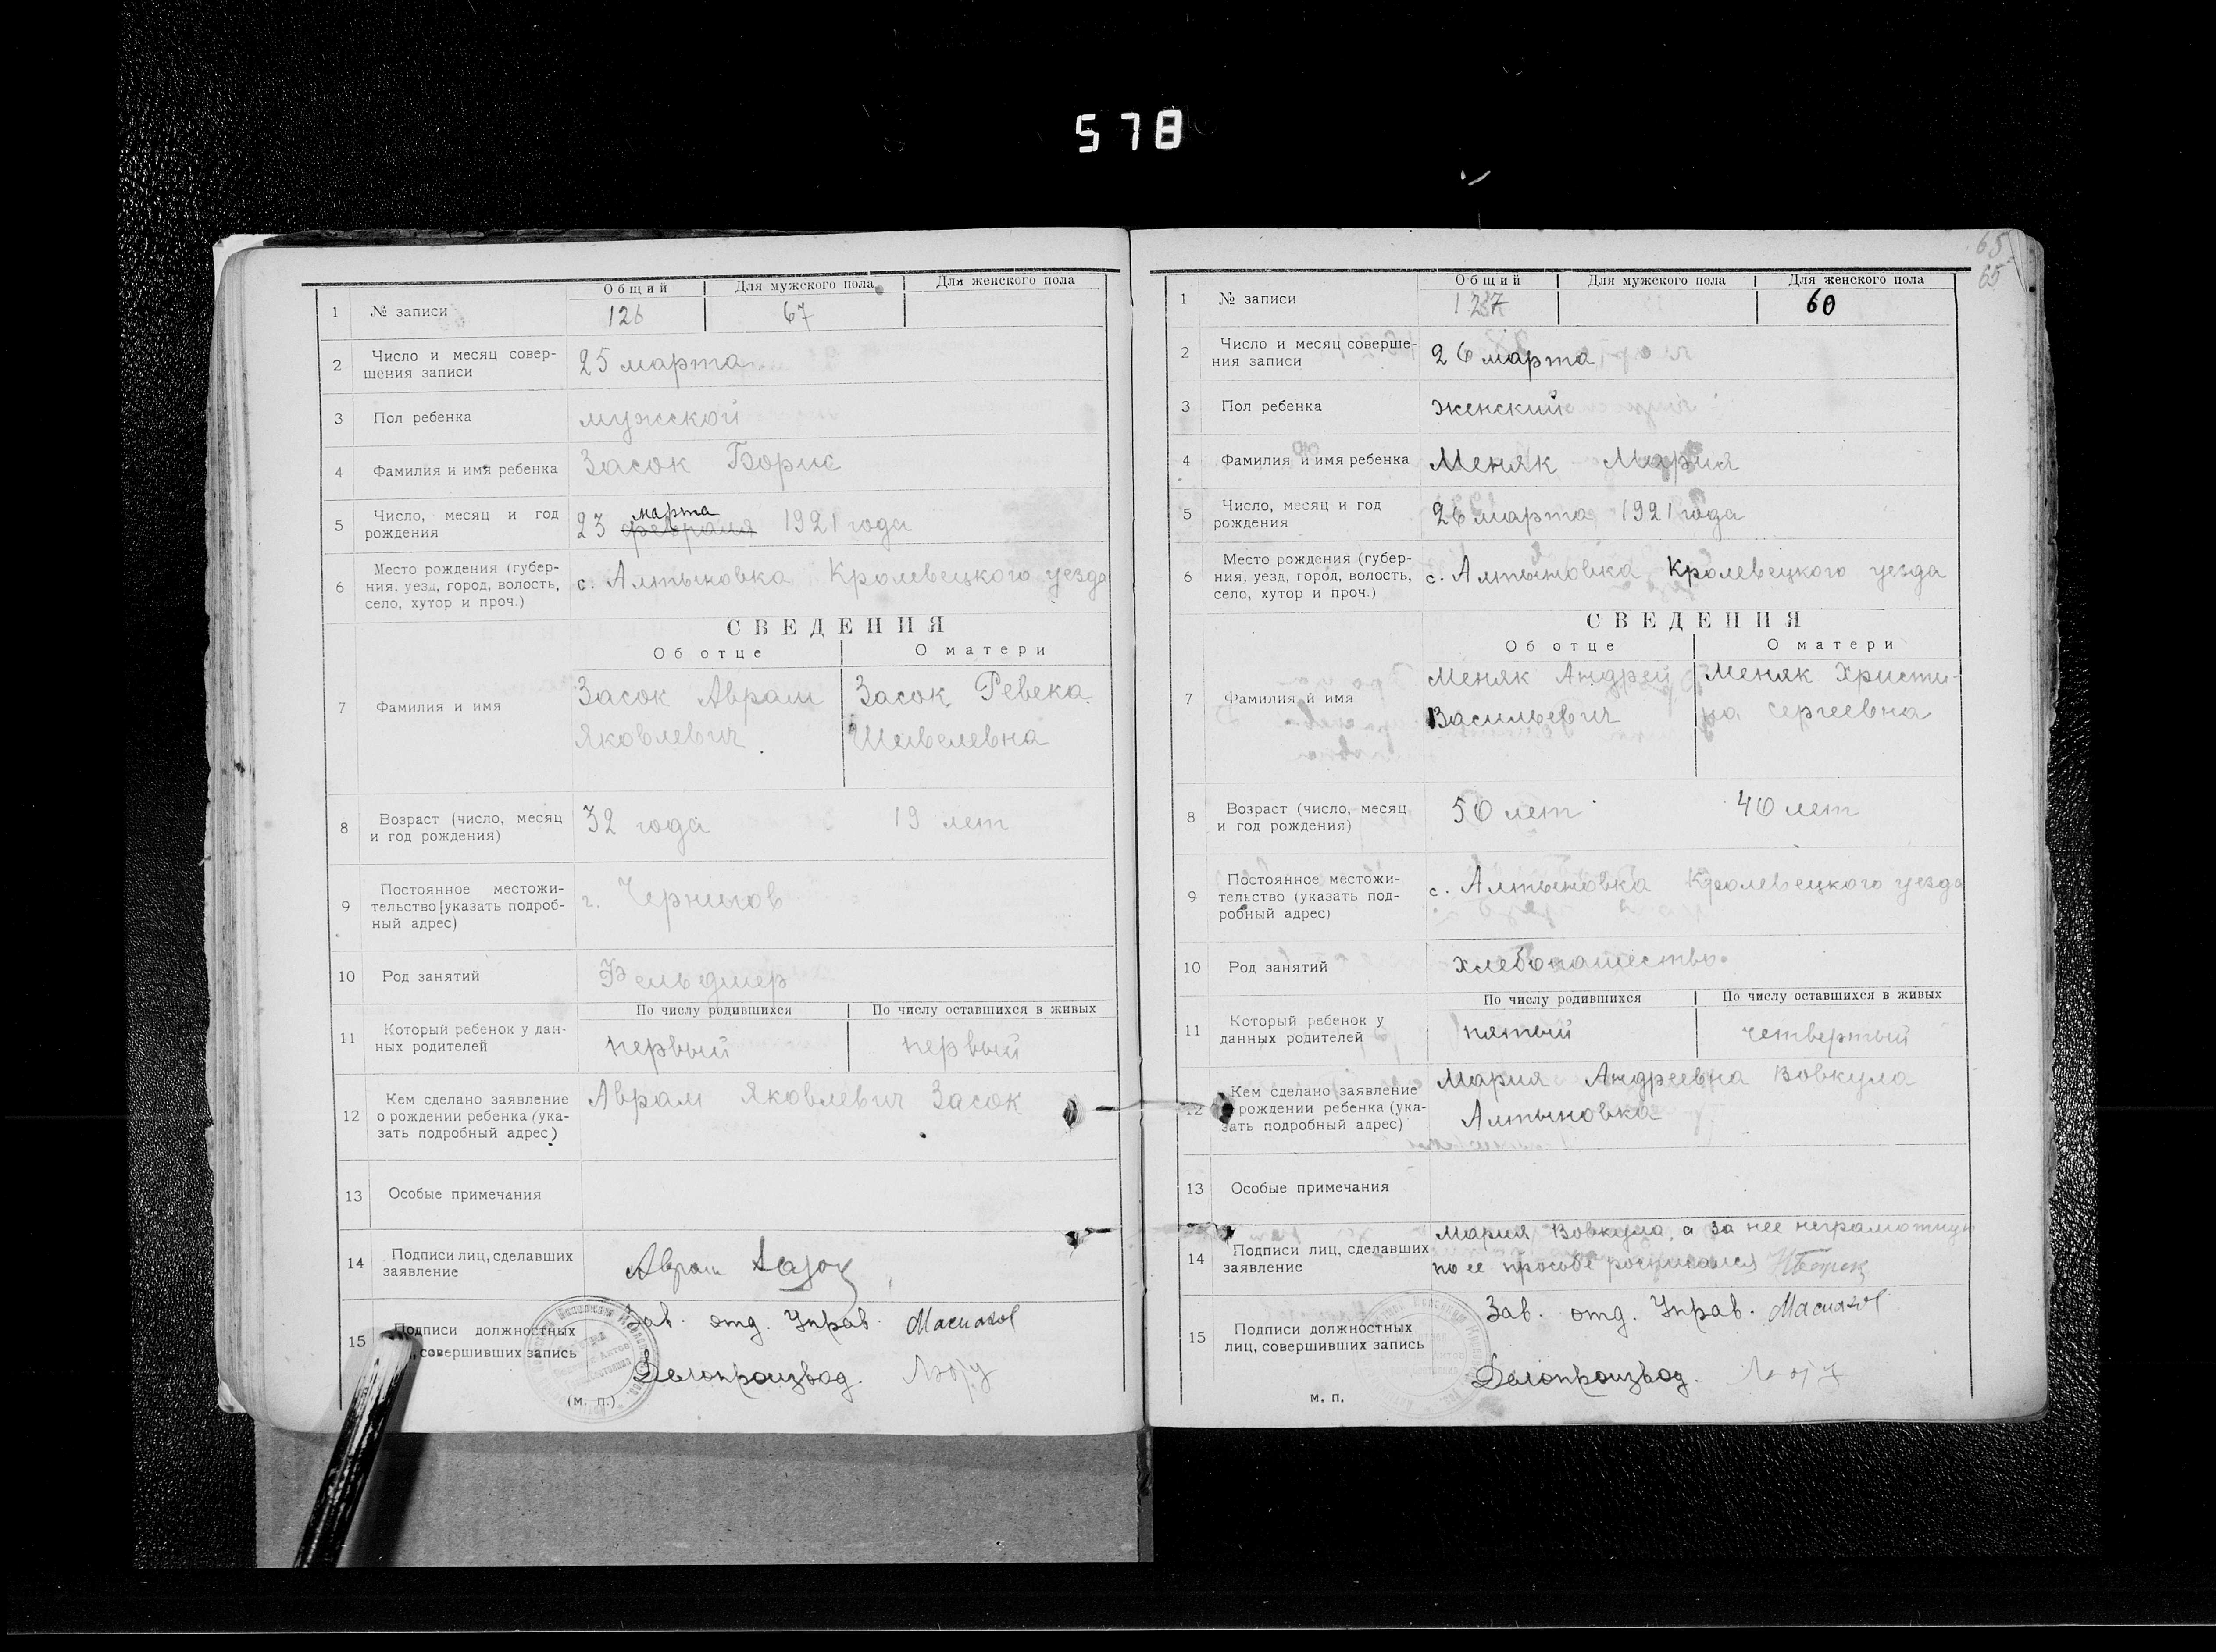 578
Общий Для мужского пола Для женского пола
1 № записи 126 67
2 Число и месяц совер-
шения записи 25 марта
3 Пол ребенка мужской
4 Фамилия и имя ребенка Засок Борис
марта
5 Число, месяц и год
рождения 23 февраля 1921 года
6 Место рождения (губер-
ния, уезд, город, волость,
село, хутор и проч.) с. Алтыновка Кролевецкого уезда
СВЕДЕНИЯ
Об отце О матери
7 Фамилия и имя Засок Аврам Засок Ревека
Яковлевич Шевелевна
8 Возраст (число, месяц
и год рождения) 32 года 19 лет
9 Постоянное местожи-
тельство (указать подроб-
ный адрес) г. Чернигов
10 Род занятий Фельдшер
По числу родившихся По числу оставшихся в живых
11 Который ребенок у дан-
ных родителей первый первый
12 Кем сделано заявление
о рождении ребенка (ука-
зать подробный адрес) Аврам Яковлевич Засок
13 Особые примечания
14 Подписи лиц, сделавших
заявление Аврам
15 Подписи должностных
, совершивших запись Зав. отд. Управ.
Делопроизвод.
(м. п.)
65
65
Общий Для мужского пола Для женского пола
1 № записи 127 60
2 Число и месяц соверше-
ния записи 26 марта
3 Пол ребенка женский
4 Фамилия и имя ребенка Меняк Мария
5 Число, месяц и год
рождения 26 марта 1921 года
6 Место рождения (губер-
ния, уезд, город, волость,
село, хутор и проч.) с. Алтыновка Кролевецкого уезда
СВЕДЕНИЯ
Об отце О матери
7 Фамилия и имя Меняк Андрей Меняк Христи-
Васильевич на Сергеевна
8 Возраст (число, месяц
и год рождения) 50 лет 40 лет
9 Постоянное местожи-
тельство (указать под-
робный адрес) с. Алтыновка Кролевецкого уезда
10 Род занятий хлебопашество
По числу родившихся По числу оставшихся в живых
11 Который ребенок у
данных родителей пятый четвертый
12 Кем сделано заявление
о рождении ребенка (ука-
зать подробный адрес) Мария Андреевна Вовкула
Алтыновка
13 Особые примечания
14 Подписи лиц, сделавших
заявление Мария Вовкула, а за нее неграмотную
по ее прозьбе росписался
15 Подписи должностных
лиц, совершивших запись Зав. отд. Управ.
Делопроизвод.
м. п.